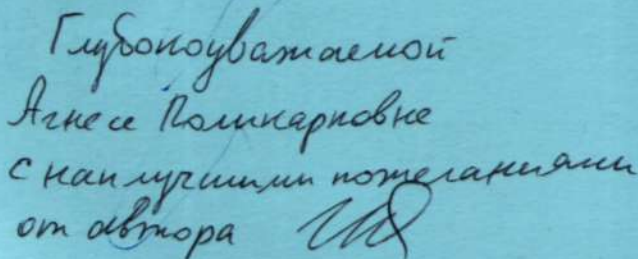 Глубокоуважаемой
Агнессе Поликарповне
с наилучшими пожеланиями
от автора